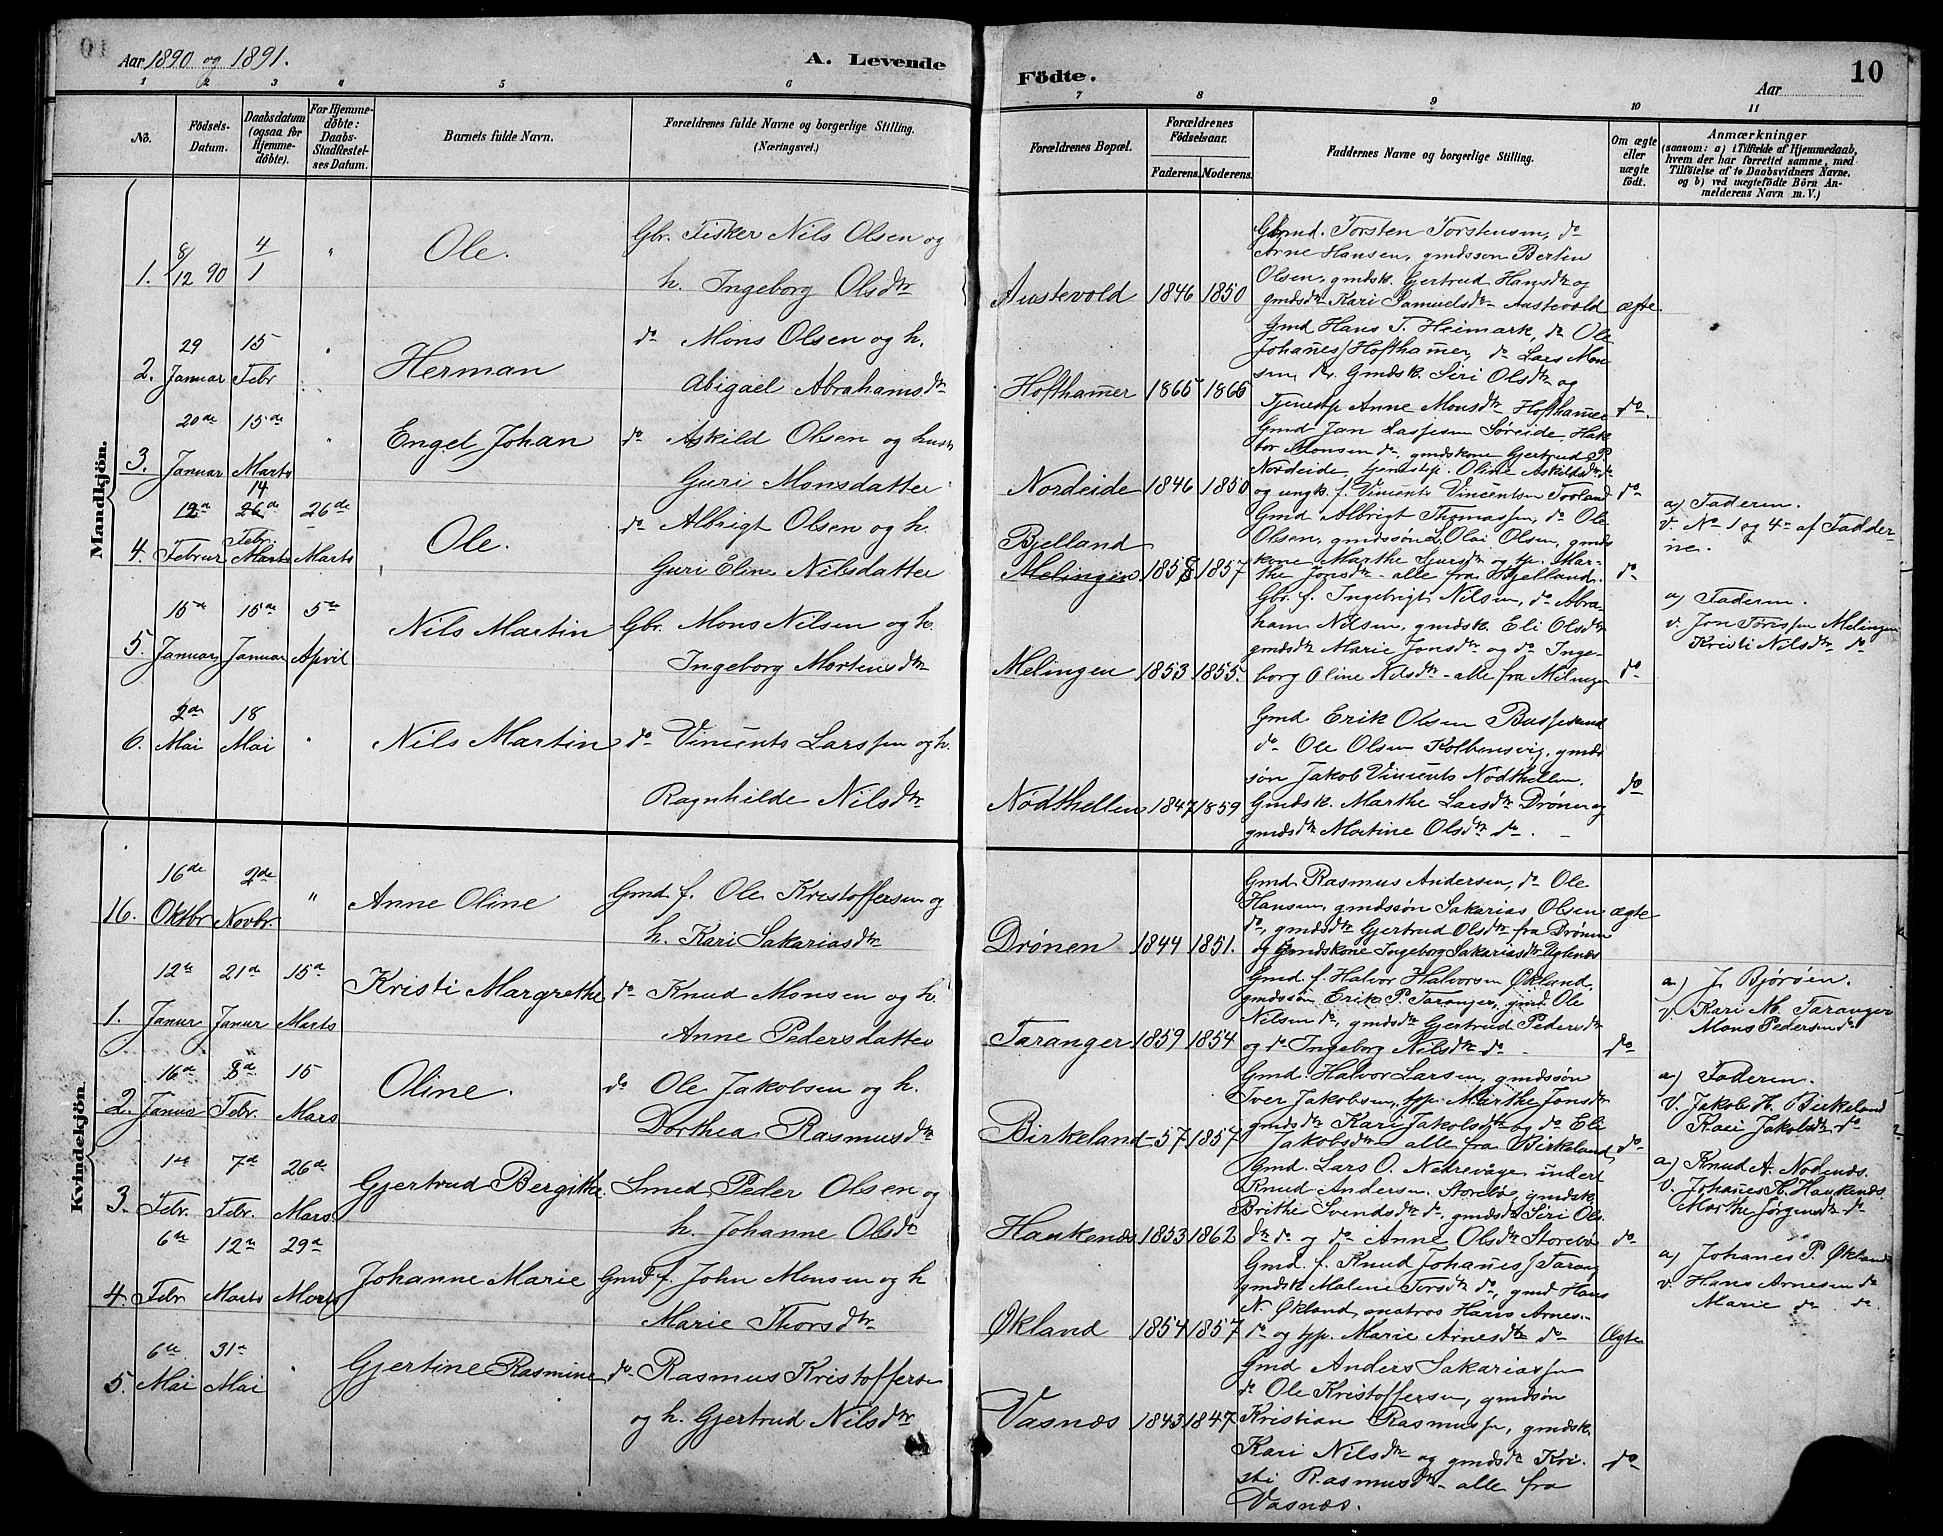 Aar 1890 og 1891.
A. Levende
Födte.
Aar
10
1 2 3 4 5 6 7 8 9 10 11
No.
Födsels-
Datum.
Daabsdatum
(ogsaa for
Hjemme-
døbte).
For Hjemme-
døbte:
Daabs-
Stadfæstel-
ses Datum.
Barnets fulde Navn.
Forældrenes fulde Navne og borgerlige Stilling.
(Næringsvei.)
Forældrenes Bopæl.
Forældrenes
Födselsaar.
Faderens. Moderens.
Faddernes Navne og borgerlige Stilling.
Om ægte
eller
uægte
födt.
Anmærkninger
(saasom: a) i Tilfælde af Hjemmedaab,
hvem der har forrettet samme, med
Tilföielse af to Daabsvidners Navne.
og b) ved uægtefödte Börn An-
melderens Navn m. V.)
Mandkjön.
1. 8/12 90 4/1 " Ole.
Gbr. Fisker Nils Olsen og
h. Ingeborg Olsdtr
Austevold 1846 1850
Gbrmd. Torsten Torstensen, do
Arne Hansen, gmdssøn Bertin
Olsen, gmdsk. Gjertrud Hansdtr og
gmdsdtr Kari Samuelsdtr Austevold
ægte.
2. 29 Januar 15 Febr " Herman
do Mons Olsen og h.
Abigael Abrahamsdtr
Hofthamer 1865 1866
Gmd Hans T. Heimark, do Ole
Johanes/ Hofthamer, do Lars Mon-
sen do. Gmdsk. Siri Olsdtr og
Tjenestp Anne Monsdtr Hofthamer
do.
3. 20de Januar 15de Marts " Engel Johan
do Askild Olsen og hustr
Guri Monsdatter
Nordeide 1846 1850
Gmd Jan Lassesen Søreide, Hak-
tor Monsen do, gmdskone Gjertrud P.
Nordeide, tjenestp. Oline Askildsdtr do
og ungk. f. Vincents Vincentsen Torland
do
4. 12te Februar 14 26de Febr. Marts 26de Marts Ole.
do Albrigt Olsen og h.
Guri Eline Nilsdatter
Bjelland
Melingen 1858 1857
Gmd Albrigt Thomassen, do Ole
Olsen, gmdssøn Olai Olsen, gmds
kone Marthe Sjursdtr og tp. Mar-
the Jonsdtr alle fra Bjelland.
do
a) Faderen.
v. No 1 og 4 af Fadder-
ne.
5. 15de Januar 15de Januar 5te April Nils Martin
Gbr. Mons Nilsen og h.
Ingeborg Mortensdtr
Melingen 1853 1855.
Gbr. f. Ingebrigt Nilsen, do Abra-
ham Nilsen, gmdsk. Eli Olsdtr
gmdsdtr Marie Jonsdtr og do Inge-
borg Oline Nilsdtr alle fra Melingen
do
a) Faderen.
v. Jon Torissen Melingen
Kristi Nilsdtr do
6. 2de Mai 18 Mai " Nils Martin
do Vincents Larssen og h.
Ragnhilde Nilsdtr
Nodthellen 1847 1859
Gmd Erik Olsen Bussesund
do Ole Olsen Kolbensvig, gmds
søn Jakob Vincents Nodthellen,
Gmdsk. Marthe Larsdtr Drønen og
gmdsdtr Martine Olsdtr do.
do
Kvindekjön.
16. 16de Oktbr 2de Novbr. " Anne Oline
Gmd f. Ole Kristoffersen og
h. Kari Sakariasdtr
Drönen 1844 1851.
Gmd Rasmus Andersen, do Ole
Hansen, gmdssøn Sakarias Olsen
do, gmdsdtr Gjertrud Olsdtr fra Drönen
og Gmdskone Ingeborg Sakariasdtr Uglenæs
ægte
1. 12te Januar 21de Januar 15de Marts Kristi Margrethe
do Knud Monsen og h.
Anne Pedersdatter
Taranger 1859 1854
Gmd. f. Halvor Halvorsen Økland,
gmdssøn Erik P. Taranger, gmd Ole
Nilsen do, gmdsdtr Gjertrud Pedersdtr
og do Ingeborg Nilsdtr do
do
a) J. Bjørøen.
v. Kari M. Taranger
Mons Pedersen do
2. 16de Januar 8de Febr. 15 Mars Oline.
do Ole Jakobsen og h.
Dorthea Rasmusdtr
Birkeland 57 1857
Gmd. Halvor Larsen, gmdssøn
Iver Jakobsen, tp. Marthe Jonsdtr
gmdsdtr Kari Jakobsdtr og do Eli
Jakobsdtr alle fra Birkeland,
do
a) Faderen.
v. Jakob H. Birkeland
Kari Jakobsdtr do
3. 1ste Febr. 7de Febr. 26de Mars Gjertrud Bergithe
Smed Peder Olsen og
h. Johanne Olsdtr
Haukenæs 1853 1862
Gmd. Lars O. Nedrevåge, inderst
Knud Andersen Storebø, gmdsk.
Brithe Svendsdtr do, gmdsdtr Siri Ols-
dtr do og do Anne Olsdtr Storebø
do
a) Knud A. Nodenæs.
v. Johanes H. Haukenæs.
Marthe Jørgensdtr do
4. 6te Febr 12te Marts 29de Marts Johanne Marie
Gmd f. John Monsen og h
Marie Thorsdtr.
Økland 1854 1857
Gmd. f. Knud Johanes/ Tarang
gmdsk Malene Torsdtr do, gmd Hans
N. Økland, matros Hans Arnes.
do og tp. Marie Arnesdtr do
Ægte
a) Johanes P. Økland
v. Hans Arnesen do
Marie do do
5. 6te Mai 31te Mai " Gjertine Rasmine
do Rasmus Kristoffersen
og h. Gjertrud Nilsdtr
Vasnæs 1843 1847
Gmd Anders Sakariassen
do Ole Kristoffersen, gmdsøn
Kristian Rasmussen, gmdsk.
Kari Nilsdtr og gmdsdtr Kri-
sti Rasmusdtr alle fra
Vasnæs.
do